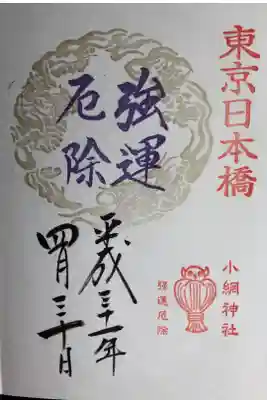 東京日本橋
強運
厄除
小網神社
強運厄除
平成三十一年
四月三十日